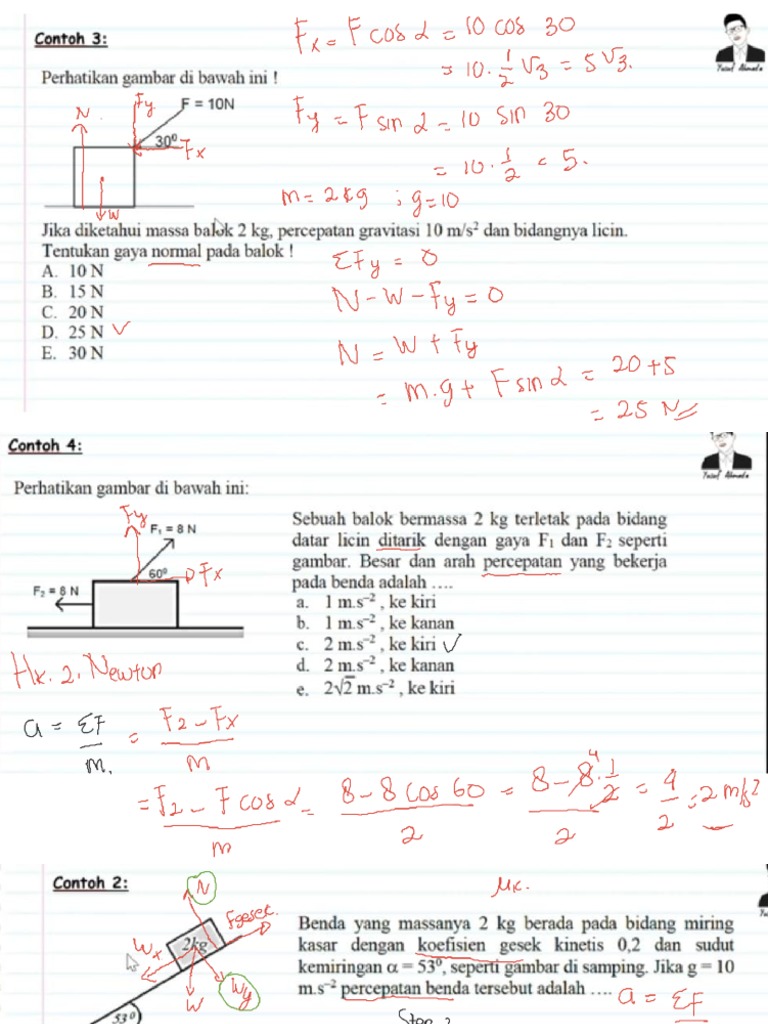 Contoh 3:
Fx = F cos α = 10 cos 30
= 10 · 1/2 √3 = 5√3.
Yusuf Ahmada
Perhatikan gambar di bawah ini !
Fy
F = 10N
N
30⁰
Fx
W
Fy = F sin α = 10 sin 30
= 10 · 1/2 = 5.
m = 2 kg ; g = 10
Jika diketahui massa balok 2 kg, percepatan gravitasi 10 m/s² dan bidangnya licin.
Tentukan gaya normal pada balok !
A. 10 N
B. 15 N
C. 20 N
D. 25 N ✓
E. 30 N
ΣFy = 0
N - W - Fy = 0
N = W + Fy
= m.g + F sin α = 20 + 5
= 25 N
Contoh 4:
Yusuf Ahmada
Perhatikan gambar di bawah ini:
Fy
F₁ = 8 N
60⁰
Fx
F₂ = 8 N
Sebuah balok bermassa 2 kg terletak pada bidang
datar licin ditarik dengan gaya F₁ dan F₂ seperti
gambar. Besar dan arah percepatan yang bekerja
pada benda adalah ….
a. 1 m.s⁻² , ke kiri
b. 1 m.s⁻² , ke kanan
c. 2 m.s⁻² , ke kiri ✓
d. 2 m.s⁻² , ke kanan
e. 2√2 m.s⁻² , ke kiri
Hk. 2. Newton
a = ΣF/m. = F₂ - Fx/m
= F₂ - F cos α/m = 8 - 8 cos 60/2 = 8 - 8 4 · 1/2/2 = 4/2 = 2 m/s²
Contoh 2:
N
F gesek.
Wx
2kg
W
Wy
53⁰
μk.
Benda yang massanya 2 kg berada pada bidang miring
kasar dengan koefisien gesek kinetis 0,2 dan sudut
kemiringan α = 53⁰, seperti gambar di samping. Jika g = 10
m.s⁻² percepatan benda tersebut adalah ….
a = ΣF